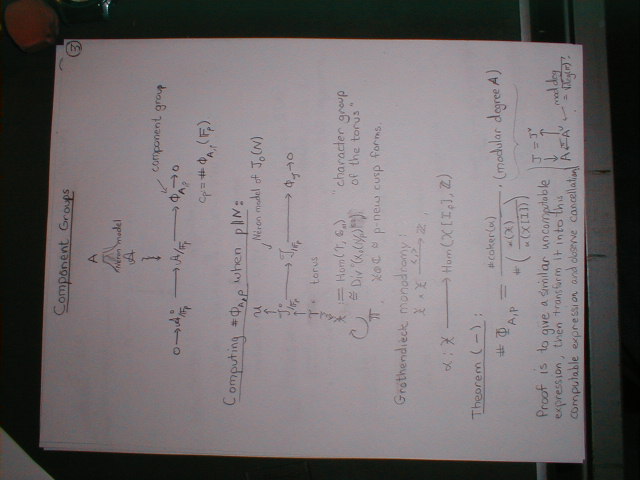 ③
Component Groups
A
Néron model
0 → 𝒜⁰/F̄p → 𝒜/F̄p → Φ_A,p → 0
component group
c_p = # Φ_A,p (F_p)
Computing # Φ_A,p when p‖N:
Néron model of J₀(N)
J⁰/F̄p → J/F̄p → Φ_J → 0
T = torus
X := Hom(T, G_m) "character group
of the torus"
T
X⊗Q p new cusp forms.
Grothendieck monodromy:
X × X → Z
α : X → Hom(X[I_f], Z)
Theorem (–):
# Φ_A,p = #coker(α) / #(α(X)/α(X[I])) · (modular degree A)
Proof is to give a similar uncomputable
expression, then transform it into this
computable expression and observe cancellation
J = J^v
A → A^v
mod deg